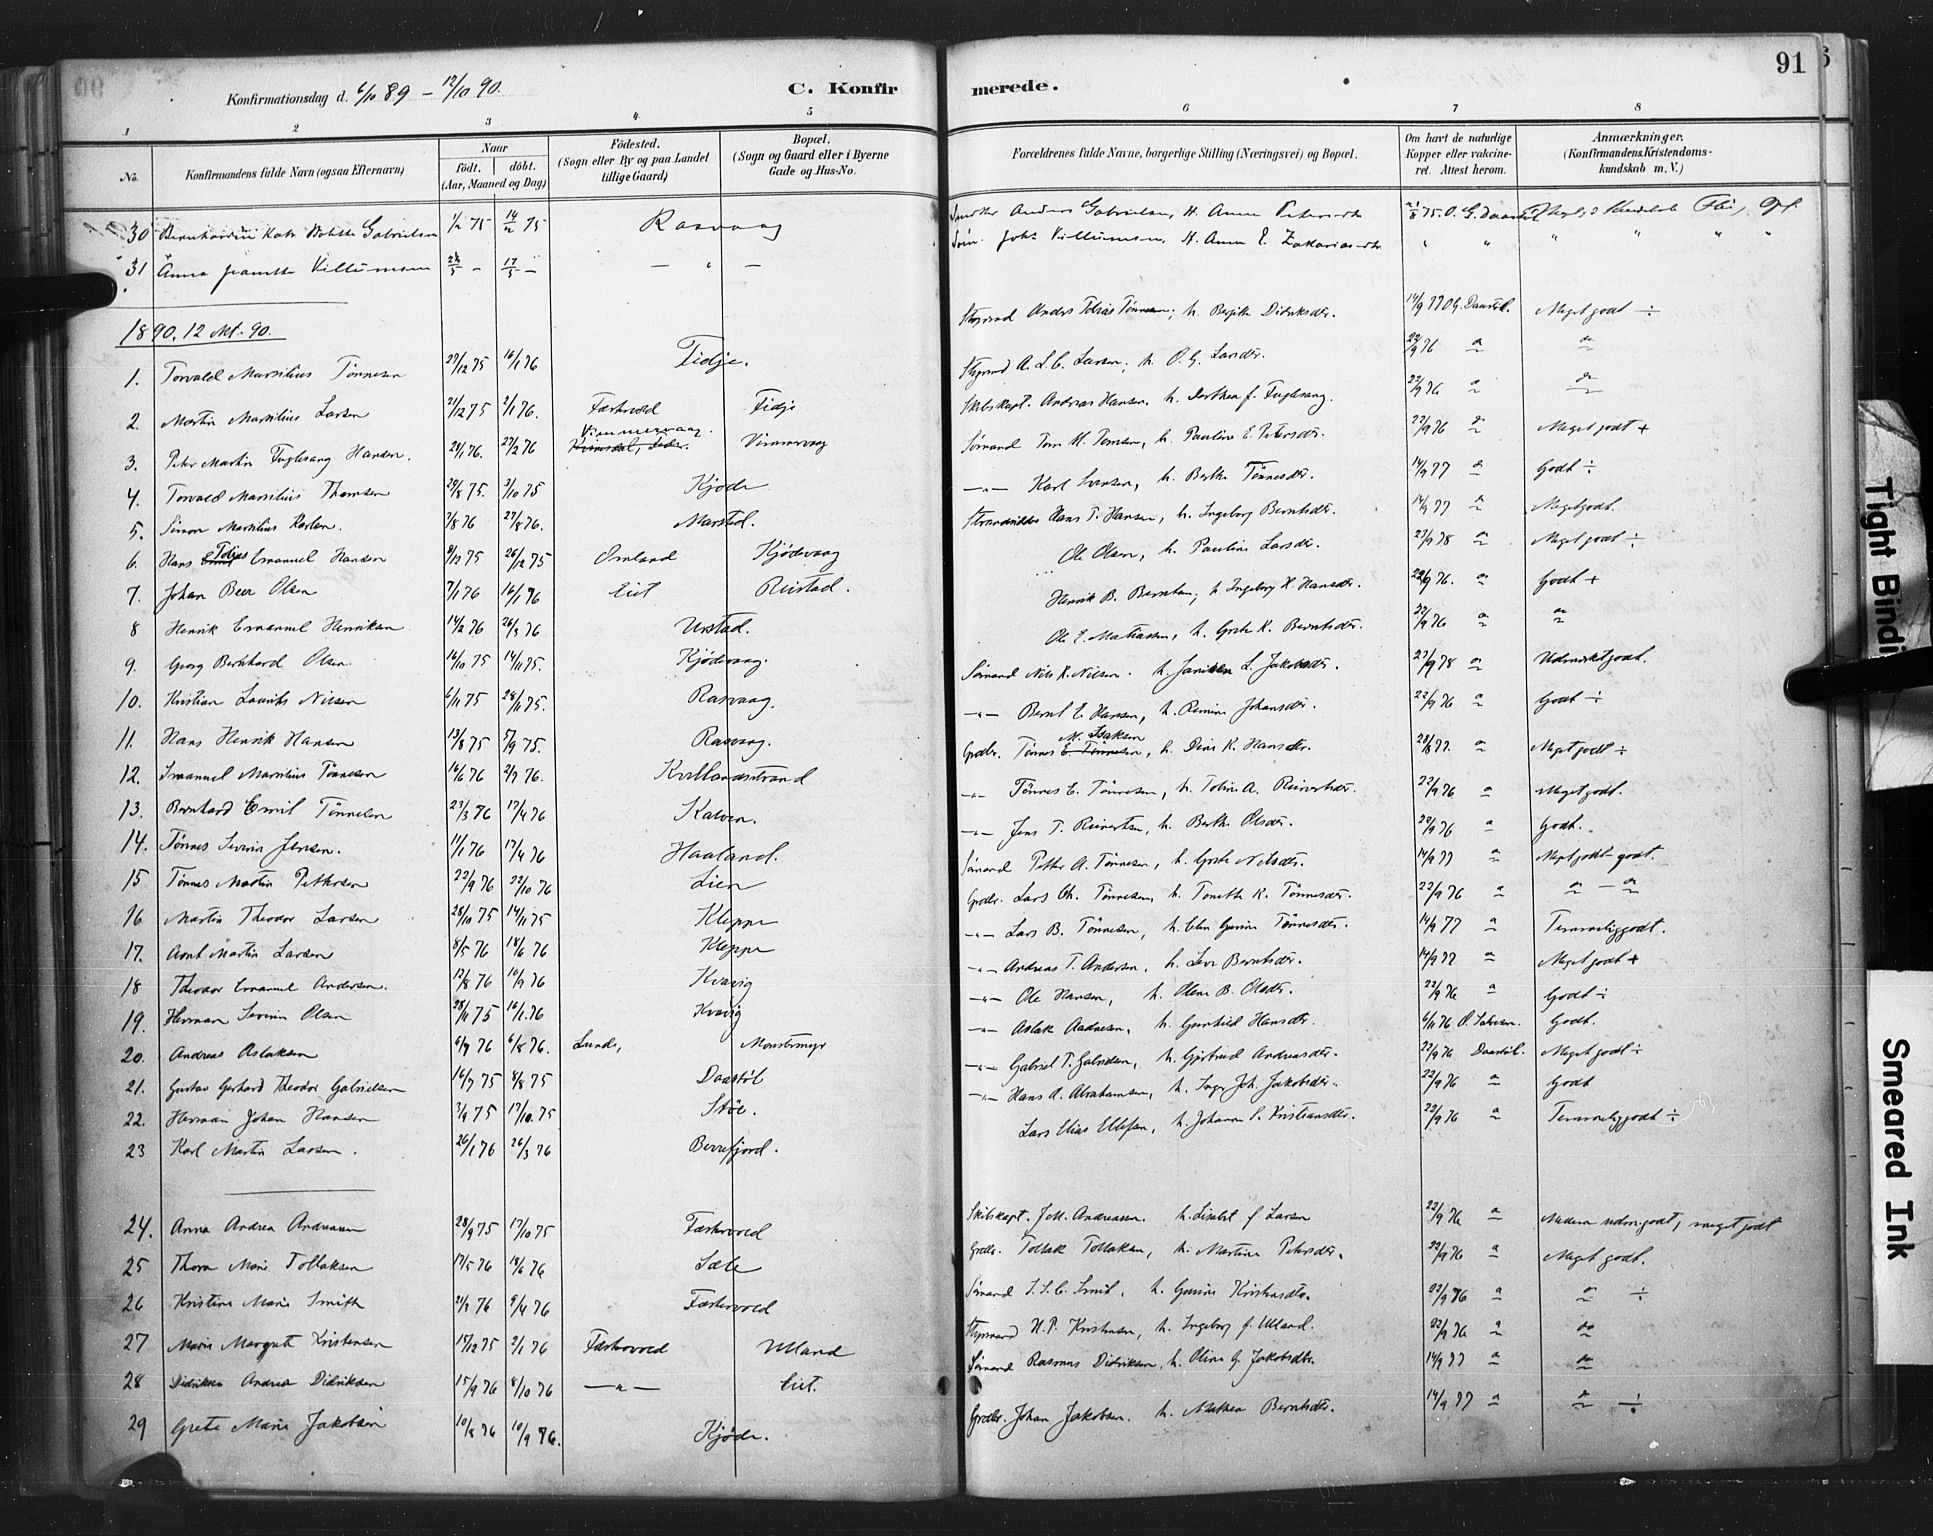 91
Konfirmationsdag d. 6/10 89 – 12/10 90.
C. Konfirmerede.
1 2 3 4 5 6 7 8
No.
Konfirmandens fulde Navn (ogsaa Efternavn)
Naar
födt. döbt.
(Aar, Maaned og Dag)
Födested.
(Sogn eller By og paa Landet
tillige Gaard)
Bopæl.
(Sogn og Gaard eller i Byerne
Gade og Hus-No.
Forældrenes fulde Navne, borgerlige Stilling (Næringsvei) og Bopæl.
Om havt de naturlige
Kopper eller vakcine-
ret. Attest herom.
Anmærkninger.
(Konfirmandens Kristendoms-
kundskab m. V.)
30 Gabrielsen 1/2 75 14/2 75 Rasvaag Anders Gabrielsen, H. Anna
31 Anna Villumsen – 17/5 – – " – Villumsen, H. Anna E. Zakariasdtr " "
1890, 12 Okt. 90.
1. Torvald Marsilius Tönnesen 27/12 75 16/1 76 Tidje. Styrmd Anders Tobias Tönnesen, h. Berjitte Didriksdtr. 14/9 77 O G. Daastöl. Meget godt ÷
2. Martin Marsilius Larsen 21/12 75 2/1 76. Farhvold Fidje Styrmd A. L. C. Larsen; h. O. G. Larsdtr. 22/9 76
3. Peter Martin Fuglesang Hansen. 24/1 76. 27/2 76 Vimmervaag Vimmervaag Skibskapt. Andreas Hansen. h. Dorthea f. Fuglesang. 22/9 76
4. Torvald Marsilius Thomsen 29/8 75. 3/10 75 Kjöde Sömand Tom M. Tomsen, h. Pauline E. Petersdtr. 22/9 76 Meget godt +
5. Simon Marsilius Karlsen. 7/8 76 27/8 76. Marstöl. –"– Karl Svensen, h. Berthe Tönnesdtr. 14/9 77 Godt ÷
6. Hans Tobias Emanuel Hansen 9/12 75 26/12 75 Omland Kjödevaag Hans T. Hansen, h. Ingeborg Berntsdtr. 14/9 77 Meget godt.
7. Johan Beer Olsen 7/1 76 16/1 76 Eiet Ruistad. Ole Olsen, h. Pauline Larsdtr. 27/9 78 Meget godt ÷
8 Henrik Emanuel Henriksen 14/2 76 26/3 76 Urstad. Henrik B. Berntsen; h. Ingeborg H. Hansdtr. 22/9 76. Godt +
9. Georg Bernhard Olsen. 16/10 75 14/11 75. Kjödevaag. Ole E. Mathiassen, h. Grete K. Berntsdtr. 22/9 76
10. Kristian Laurits Nilsen 6/11 75 28/11 75. Rasvaag. Sömand Nils R. Nilsen. h. Janikken L. Jakobsdtr. 27/9 78 Udmærket godt.
11. Hans Henrik Hansen 13/8 75 5/9 75. Rasvaag. –"– Bernt E. Hansen, h. Johansdtr. 22/9 76 Godt ÷
12. Emanuel Marsilius Tönnesen 16/6 76 2/7 76. Kvellandsstrand Grdbr. Tönnes M. Isaksen, h. Dine K. Hansdtr. 28/8 77. Meget godt ÷
13. Bernhard Emil Tönnesen 23/3 76 17/4 76 Kalven. –"– Tönnes E. Tönnesen, h. Toline A. Reinertsdtr. 22/9 76 Meget godt.
14. Tönnes Severin Jensen. 11/1 76 17/4 76 Haaland. –"– Jens T. Reinertsen, h. Berthe Olsdtr. 22/9 76 Godt.
15 Tönnes Martin Pettersen 22/9 76 22/10 76 Lien Sömand Petter A. Tönnesen, h. Grete Nilsdtr. 14/9 77 Meget godt – godt.
16 Martin Theodor Larsen 28/10 75 14/11 75 Kleppe Grdbr. Lars Chr. Tönnesen, h. Tonette K. Tönnesdtr. 22/9 76
17. Arnt Martin Larsen 8/5 76 18/6 76 Kleppe –"– Lars B. Tönnesen, h. Elen Gurine Tönnesdtr. 14/9 77 Temmelig godt.
18 Theodor Emanuel Andersen. 12/8 76 10/9 76 Kvavig –"– Andreas T. Andersen, h. Berntsdtr. 14/9 77 Meget godt +
19. Herman Severin Olsen 28/11 75 16/1 76 Kvavig –"– Ole Hansen, h. Olene B. Olsdtr. 22/9 76 Godt ÷
20. Andreas Aslaksen 6/7 76 6/8 76. Lunde, Monstermyr –"– Aslak Aadnesen, h. Gunhild Hansdtr. 6/11 76 Godt.
21. Gustav Gerhard Theodor Gabrielsen 16/7 75 8/8 75 Daastöl –"– Gabriel T. Gabrielsen, h. Gjertrud Andreasdtr. 22/9 76 Daastöl. Meget godt ÷
22. Herman Johan Hansen 7/9 75 17/10 75 Stöl. –"– Hans A. Abrahamsen, h. Inger Joh. Jakobsdtr. 22/9 76 Godt
23 Karl Martin Larsen. 26/1 76 26/3 76 Berrefjord. Lars Elias Ellefsen, h. Johanne S. Kristiansdtr. 22/9 76 Temmelig godt ÷
24. Anna Andrea Andreassen 28/9 75 17/10 75 Farhvold Skibskapt. J. M. Andreassen. h. Lisabet f. Larsen 22/9 76 meget godt
25 Thora Marie Tollaksen 17/5 76 18/6 76 Sæle Grdbr. Tollak Tollaksen, h. Martine Petersdtr. 22/9 76 Meget godt.
26 Kristine Marie Smith 21/3 76 9/4 76 Farhvold Sömand S. S. C. Smit. h. Gurine Kristensdtr. 22/9 76 ÷
27 Marie Margrete Kristensen 17/12 75 2/1 76 Farhvold Ulland Styrmand H. P. Kristensen, h. Ingeborg f. Ulland. 22/9 76
28 Didrikke Andrea Didriksen 15/9 76 8/10 76 –"– Eiet. Sömand Rasmus Didriksen, h. Oline G. Jakobsdtr. 14/9 77
29 Grete Marie Jakobsen 10/8 76 10/9 76. Kjöde. Grdbr. Johan Jakobsen. h. Mathea Berntsdtr. 14/9 77 ÷
Tight Bindi
Smeared Ink